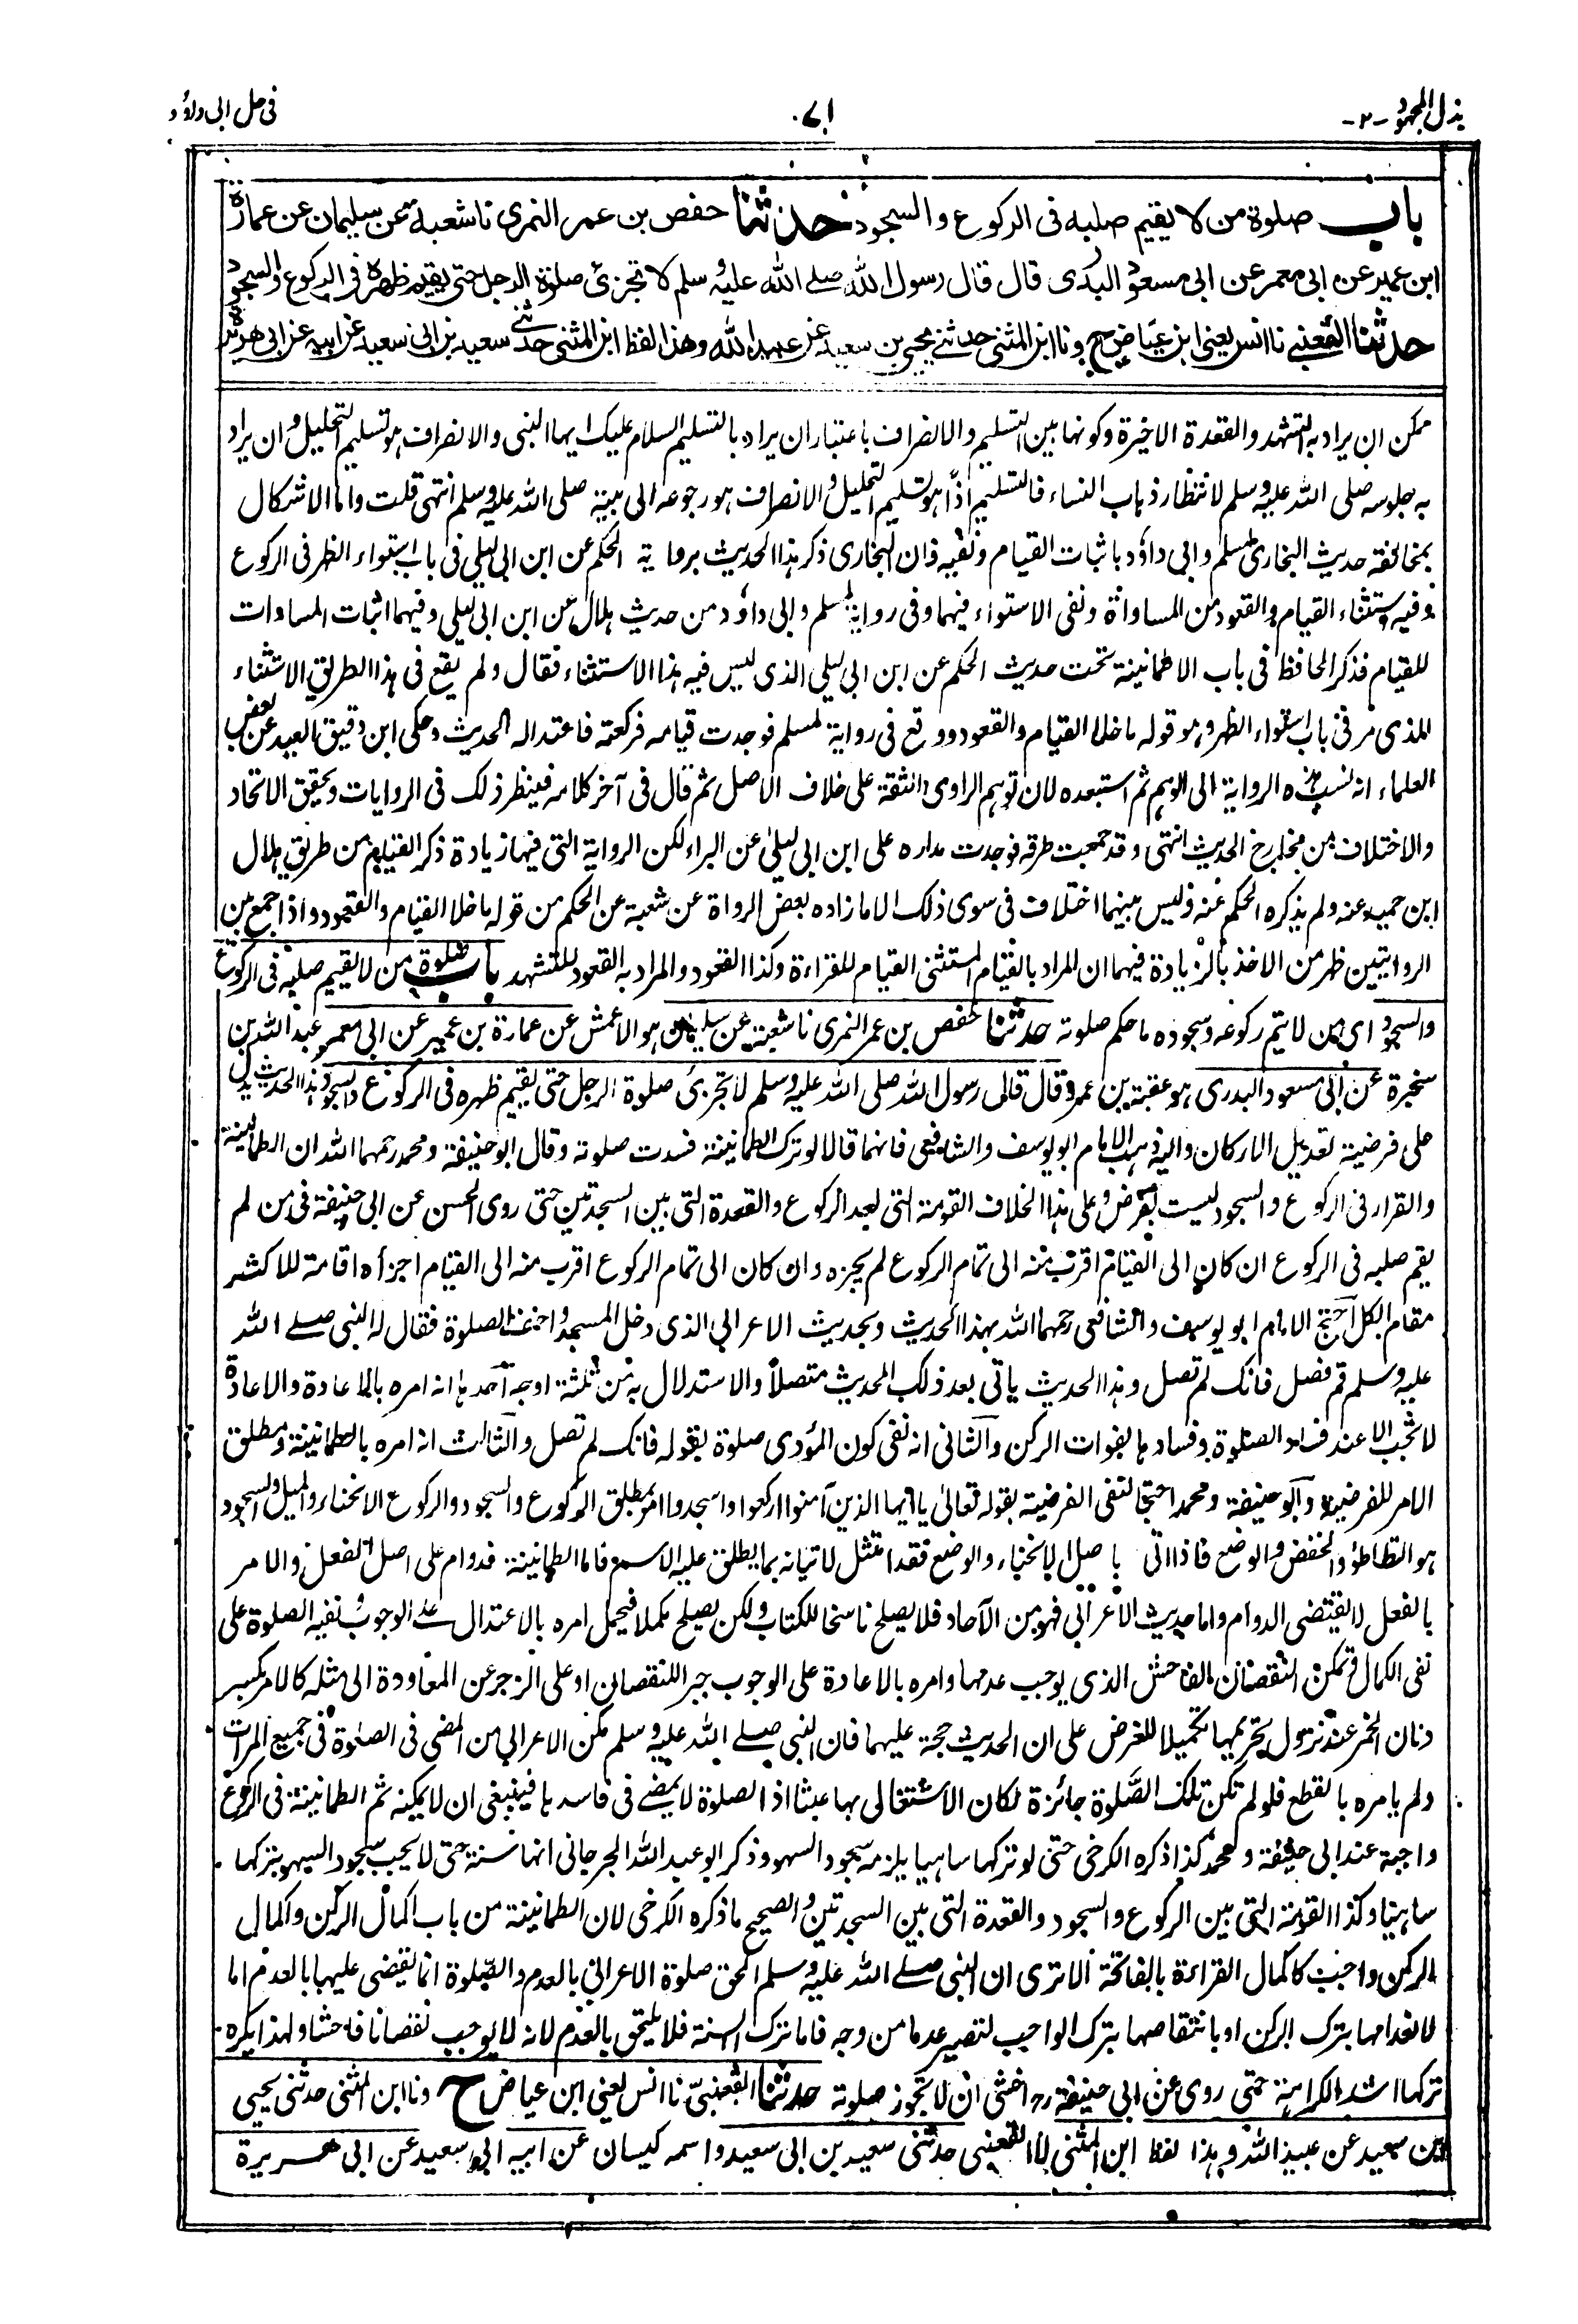 بذل المجهود -٢-
٧١
فى حل ابى داؤد
باب صلوة من لا يقيم صلبه فى الركوع والسجود حدثنا حفص بن عمر النمرى نا شعبة عن سليمان عن عمارة
ابن عمير عن ابى معمر عن ابى مسعود البدرى قال قال رسول الله صلے الله عليه وسلم لا تجزئ صلوة الرجل حتى يقيم ظهره فى الركوع والسجود
حدثنا القعنبے نا انس يعنى ابن عياض ح ونا ابن المثنى حدثنے يحيى بن سعيد عن عبيد الله وهذا لفظ ابن المثنى حدثنے سعيد بن ابى سعيد عن ابيه عن ابى هريرة
ممكن ان يراد به التشهد والقعدة الاخيرة وكونها بين التسليم والانصراف باعتبار ان يراد بالتسليم السلام عليك ايها النبى والانصراف هو تسليم التحليل وان يراد
به جلوسه صلى الله عليه وسلم لانتظار ذهاب النساء فالتسليم اذا هو تسليم التحليل والانصراف هو رجوعه الى بيته صلى الله عليه وسلم انتهى قلت واما الاشكال
بمخالفة حديث البخارى لمسلم وابى داؤد باثبات القيام ونفيه فان البخارى ذكر هذا الحديث برواية الحكم عن ابن ابى ليلى فى باب استواء الظهر فى الركوع
وفيه استثناء القيام والقعود من المساواة ونفى الاستواء فيهما وفى رواية لمسلم وابى داؤد من حديث هلال عن ابن ابى ليلى وفيهما اثبات المساوات
للقيام فذكر الحافظ فى باب الاطمانينة تحت حديث الحكم عن ابن ابى ليلى الذى ليس فيه هذا الاستثناء فقال ولم يقع فى هذا الطريق الاستثناء
الذى مر فى باب استواء الظهر وهو قوله ما خلا القيام والقعود ووقع فى رواية لمسلم فوجدت قيامه فركعته فاعتداله الحديث وحكى ابن دقيق العيد عن بعض
العلماء انه نسب هذه الرواية الى الوهم ثم استبعده لان توهم الراوى الثقة على خلاف الاصل ثم قال فى آخر كلامه فينظر ذلك فى الروايات ويحقق الاتحاد
والاختلاف من مخارج الحديث انتهى وقد جمعت طرقه فوجدت مداره على ابن ابى ليلى عن البراء لكن الرواية التى فيها زيادة ذكر القيام من طريق هلال
ابن حميد عنه ولم يذكره الحكم عنه وليس بينهما اختلاف فى سوى ذلك الا ما زاده بعض الرواة عن شعبة عن الحكم من قوله ما خلا القيام والقعود واذا جمع بين
الروايتين ظهر من الاخذ بالزيادة فيهما ان المراد بالقيام المستثنى القيام للقراءة وكذا القعود والمراد به القعود للتشهد باب صلوة من لا يقيم صلبه فى الركوع
والسجود اى من لا يتم ركوعه وسجوده ما حكم صلوته حدثنا حفص بن عمر النمرى نا شعبة عن سليمان هو الاعمش عن عمارة بن عمير عن ابى معمر عبد الله بن
سخبرة عن ابى مسعود البدرى هو عقبة بن عمرو قال قال رسول الله صلى الله عليه وسلم لا تجزئ صلوة الرجل حتى يقيم ظهره فى الركوع والسجود وهذا الحديث يدل
على فرضية تعديل الاركان واليه ذهب الامام ابو يوسف والشافعى فانهما قالا لو ترك الطمانينة فسدت صلوته وقال ابو حنيفة ومحمد رحمهما الله ان الطمانينة
والقرار فى الركوع والسجود ليست بفرض وعلى هذا الخلاف القومة التى بعد الركوع والقعدة التى بين السجدتين حتى روى الحسن عن ابى حنيفة فى من لم
يقم صلبه فى الركوع ان كان الى القيام اقرب منه الى تمام الركوع لم يجزه وان كان الى تمام الركوع اقرب منه الى القيام اجزأه اقامة للاكثر
مقام الكل احتج الامام ابو يوسف والشافعى رحمهما الله بهذا الحديث وبحديث الاعرابى الذى دخل المسجد واخف الصلوة فقال له النبى صلے الله
عليه وسلم قم فصل فانك لم تصل وهذا الحديث ياتى بعد ذلك الحديث متصلاً والاستدلال به من ثلثة اوجه احدها انه امره بالاعادة والاعادة
لا تجب الا عند فساد الصلوة وفسادها بفوات الركن والثانى انه نفى كون المؤدى صلوة بقوله فانك لم تصل والثالث انه امره بالطمانينة ومطلق
الامر للفرضية وابو حنيفة ومحمد احتجا لنفى الفرضية بقوله تعالى يا ايها الذين آمنوا اركعوا واسجدوا امر بمطلق الركوع والسجود والركوع الانحناء والميل والسجود
هو التطاطؤ والخفض والوضع فاذا اتى باصل الانحناء والوضع فقد امتثل لاتيانه بما يطلق عليه الاسم فاما الطمانينة فدوام على اصل الفعل والامر
بالفعل لا يقتضى الدوام واما حديث الاعرابى فهو من الآحاد فلا يصلح ناسخا للكتاب ولكن يصلح مكملا فيحمل امره بالاعتدال على الوجوب ونفيه الصلوة على
نفى الكمال وتمكن النقصان الفاحش الذى يوجب عدمها وامره بالاعادة على الوجوب جبرا للنقصان او على الزجر عن المعاودة الى مثله كالامر بكسر
دنان الخمر عند نزول تحريمها تكميلا للغرض على ان الحديث حجة عليهما فان النبى صلے الله عليه وسلم مكن الاعرابى من المضى فى الصلوة فى جميع المرات
ولم يامره بالقطع فلو لم تكن تلك الصلوة جائزة لكان الاشتغال بها عبثا اذ الصلوة لا يمضے فى فاسدها فينبغى ان لا يمكنه ثم الطمانينة فى الركوع
واجبة عند ابى حنيفة ومحمد كذا ذكره الكرخى حتى لو تركها ساهيا يلزمه سجود السهو وذكر ابو عبد الله الجرجانى انها سنة حتى لا يجب سجود السهو بتركها
ساهيا وكذا القومة التى بين الركوع والسجود والقعدة التى بين السجدتين والصحيح ما ذكره الكرخى لان الطمانينة من باب اكمال الركن واكمال
الركن واجب كاكمال القراءة بالفاتحة الا ترى ان النبى صلے الله عليه وسلم الحق صلوة الاعرابى بالعدم والصلوة انما يقضى عليها بالعدم اما
لانعدامها بترك الركن او بانتقاصها بترك الواجب لتصير عدما من وجه فاما ترك السنة فلا يلتحق بالعدم لانه لا يوجب نقصانا فاحشا ولهذا يكره
تركها اشد الكراهة حتى روى عن ابى حنيفة رح اخشى ان لا تجوز صلوته حدثنا القعنبى نا انس يعنى ابن عياض ح ونا ابن المثنى حدثنى يحيى
بن سعيد عن عبيد الله وهذا لفظ ابن المثنى لا القعنبى حدثنى سعيد بن ابى سعيد واسمه كيسان عن ابيه ابى سعيد عن ابى هريرة